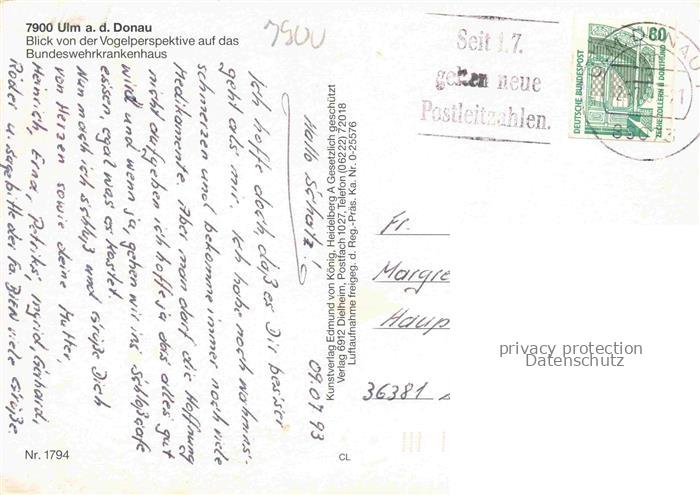 7900 Ulm a. d. Donau
Blick von der Vogelperspektive auf das
Bundeswehrkrankenhaus
7900
Seit 1.7.
gelten neue
Postleitzahlen.
DEUTSCHE BUNDESPOST
60
ZECHE ZOLLERN II DORTMUND
ULM, DONAU
09.07.93
Hallo Schatz!
Ich hoffe doch, daß es Dir besser
geht als mir. Ich habe noch
schmerzen und bekomme immer noch viele
Medikamente. Aber man darf die Hoffnung
nicht aufgeben ich hoffe ja das alles gut
wird und wenn ja, gehen wir ins Schloßcafe
essen, egal was es kostet.
Nun mach ich schluß und Grüße Dich
von Herzen sowie deine Mutter,
Heinrich, Erna, Ingrid, Gerhard,
Röder u. sage bitte der Fa. viele Grüße.
Kunstverlag Edmund von König, Heidelberg A Gesetzlich geschützt
Verlag 6912 Dielheim, Postfach 1027, Telefon (06222) 72018
Luftaufnahme freigeg. d. Reg.-Präs. Ka. Nr. 0-25576
Fr.
Margre
Haup
privacy protection
Datenschutz
36381
Nr. 1794
CL